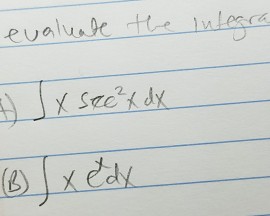 evaluate the integra
A) ∫ x sec²x dx
(B) ∫ x eˣdx